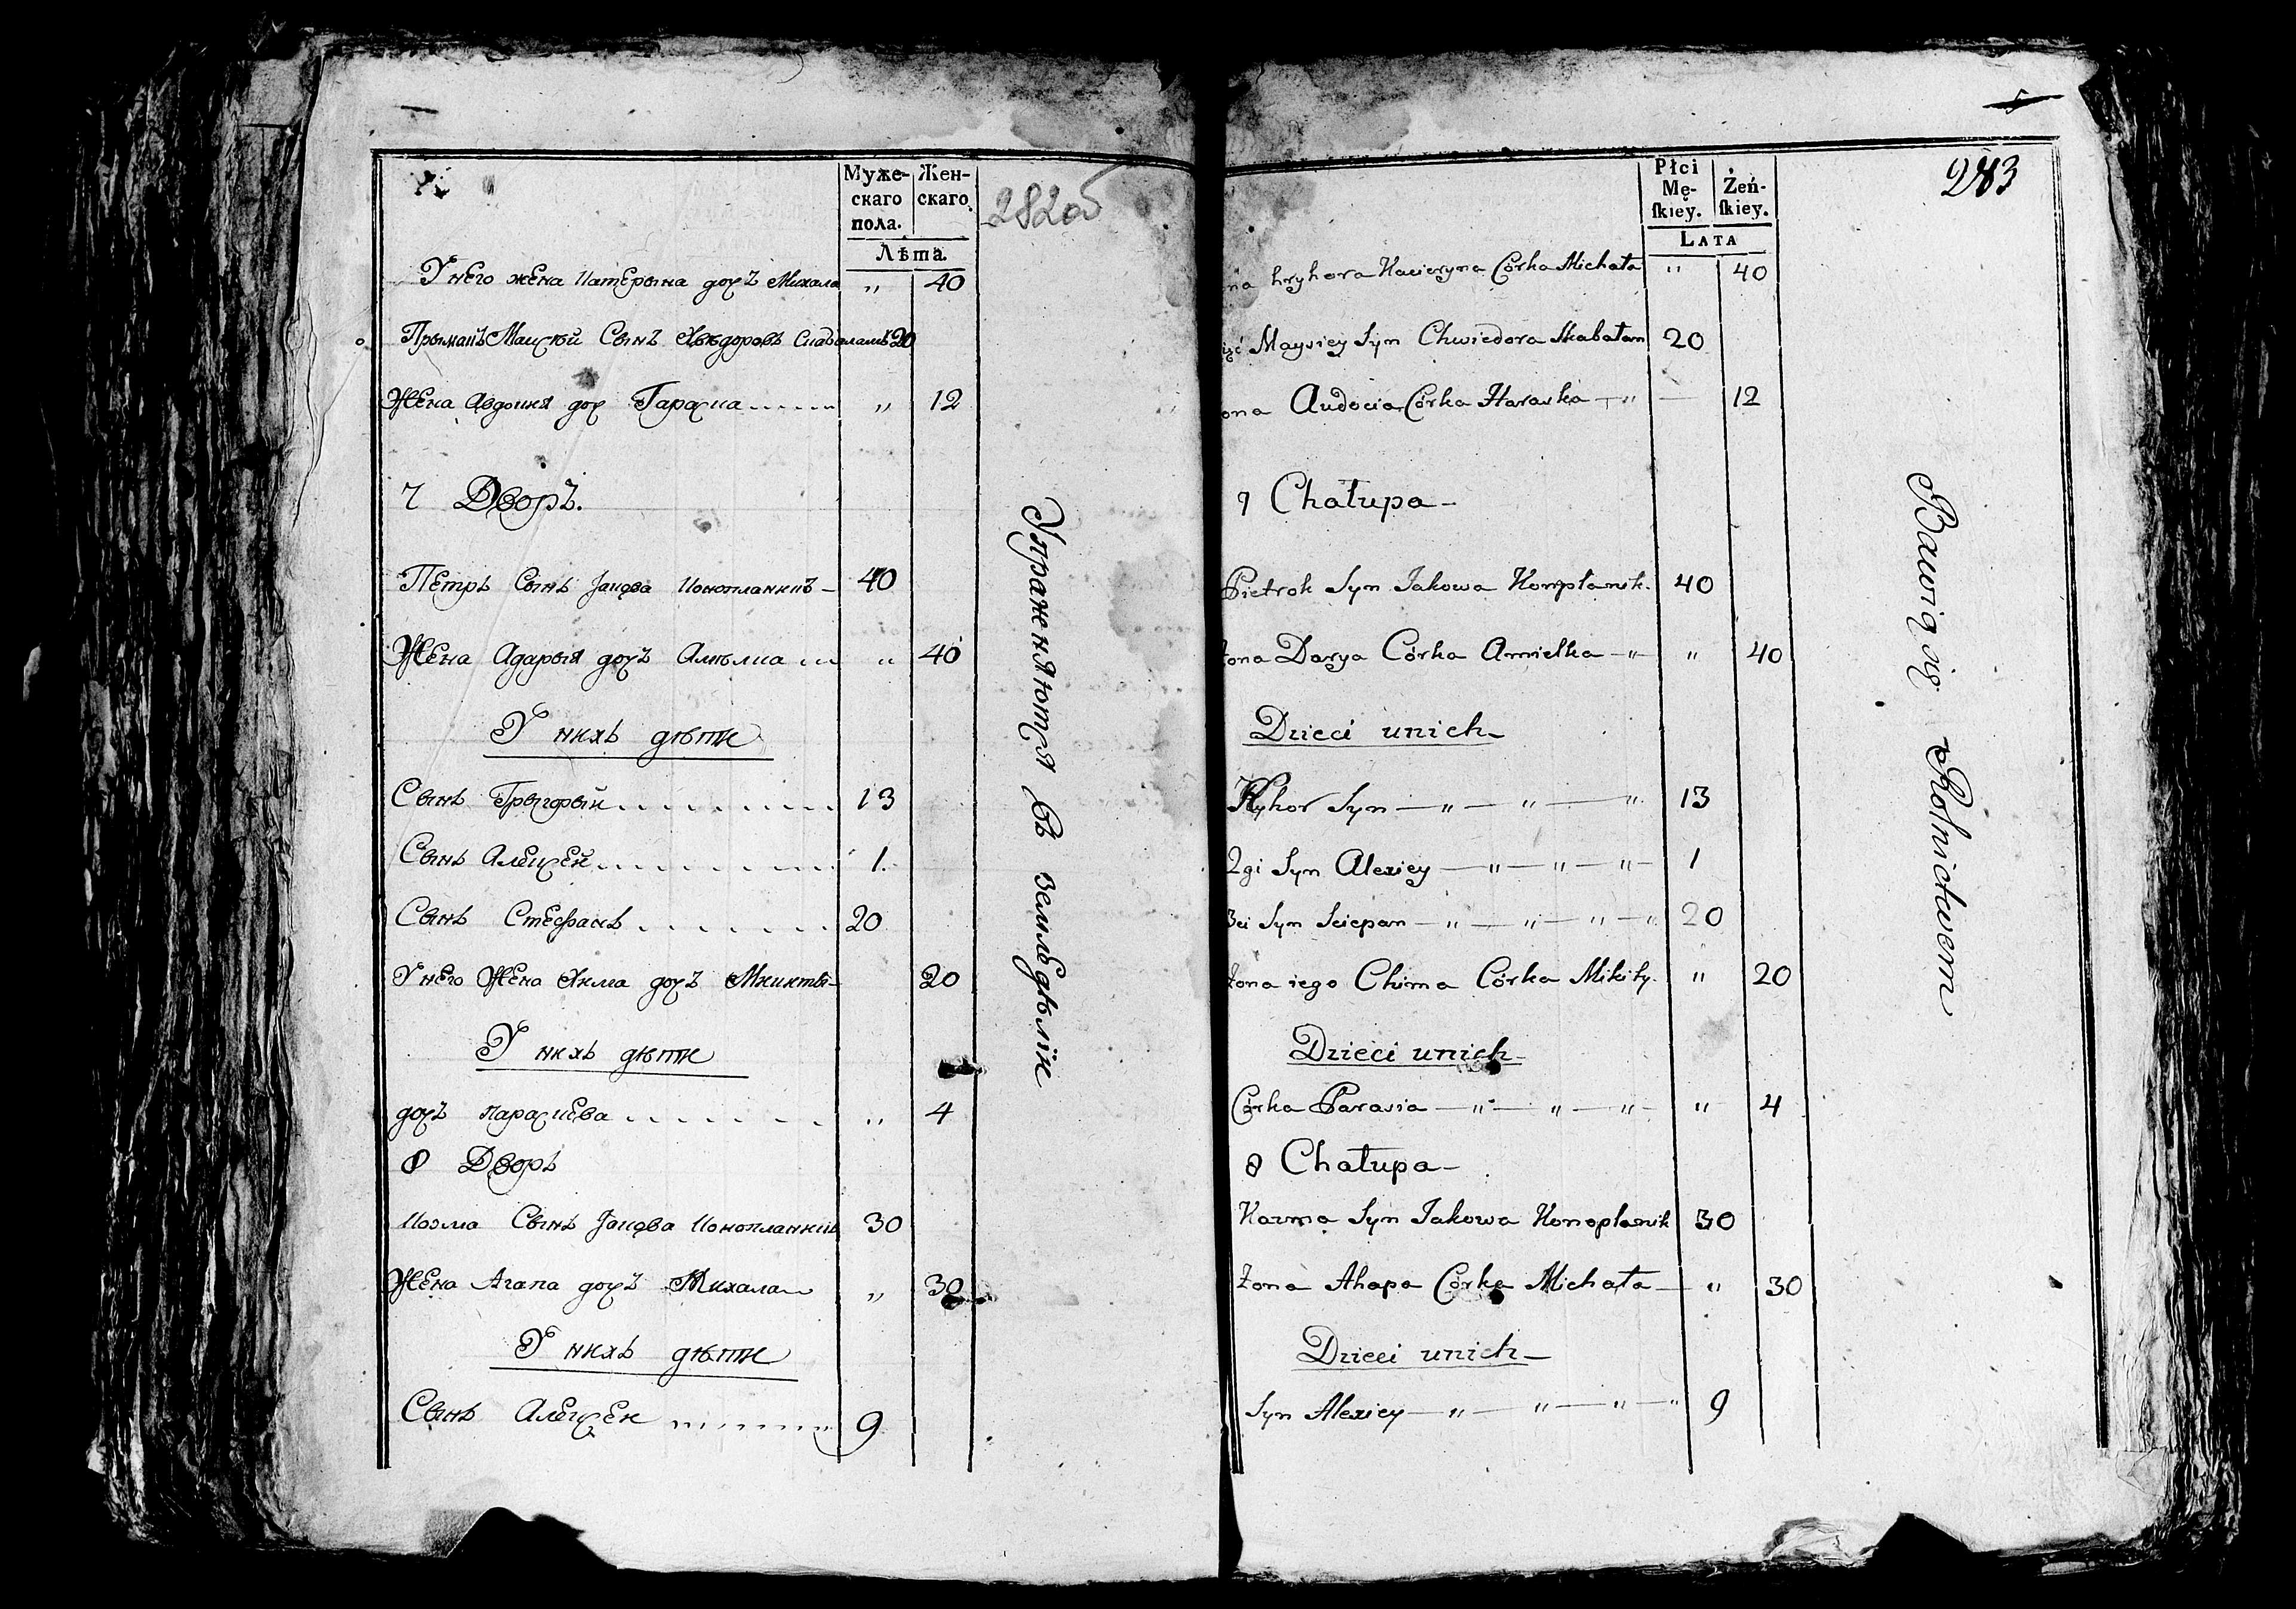 Муже-
скаго
пола.
Жен-
скаго.
Лѣта.
282об
У него жена Катерына дочъ Михала „ 40
Прымакъ Мацѣй Сынъ Хвѣдоровъ 20
Жена Авдоция доч Гараска „ 12
7 Дворъ.
Петръ Сынъ Јакова Коноплянникъ 40
Жена Адарыя дочъ Амѣлка „ 40
У нихъ дѣти
Сынъ Грыгорый 13
Сынъ Алексей 1.
Сынъ Стефанъ 20
У него Жена Хима дочъ Микиты 20
У нихъ дѣти
дочъ параскева „ 4
8 Дворъ
Козма Сынъ Јакова Коноплянникъ 30
Жена Агапа дочъ Михала „ 30
У нихъ дѣти
Сынъ Алексей 9
Упражняются въ земледѣліи
5
283
Płci
Mę-
ſkiey.
Żeń-
ſkiey.
LATA
na hryhora Kacieryna Córka Michała „ 40
Maysiey Syn Chwiedora Skabałan 20
ona Audocia Córka Haraska — „ — 12
7 Chałupa —
Pietrok Syn Jakowa Konopłanik. 40
żona Darya Córka Amielka — „ „ 40
Dzieci unich —
Hryhor Syn — „ — „ — „ 13
2gi Syn Alexiey — „ — „ — „ — 1
3ci Syn Sciepan — „ — „ — „ — „ 20
żona iego Chima Córka Mikity. „ 20
Dzieci unich —
Córka Parasia — „ — „ — „ — „ 4
8 Chałupa —
Kozma Syn Jakowa Konopłanik 30
żona Ahapa Córka Michała — „ 30
Dzieci unich —
Syn Alexiey — „ — „ — „ — „ 9
Bawią się Rolnictwem